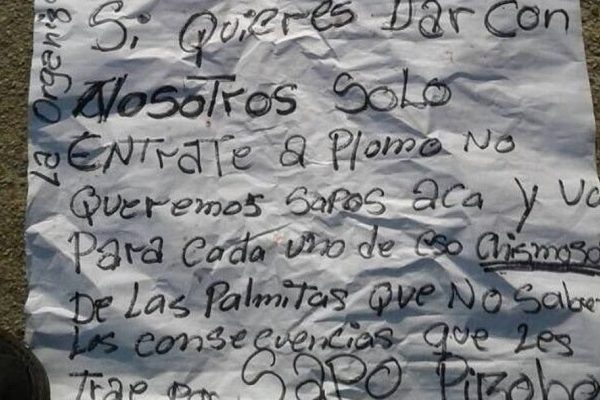 La Organiza
Si Quieres Dar Con
Nosotros Solo
ENTrate a Plomo No
Queremos Sapos aca y va
Para cada uno de eso chismoso
De Las Palmitas Que No Sabe
Las consecuencias que Les
Trae Por SaPO Pirobo